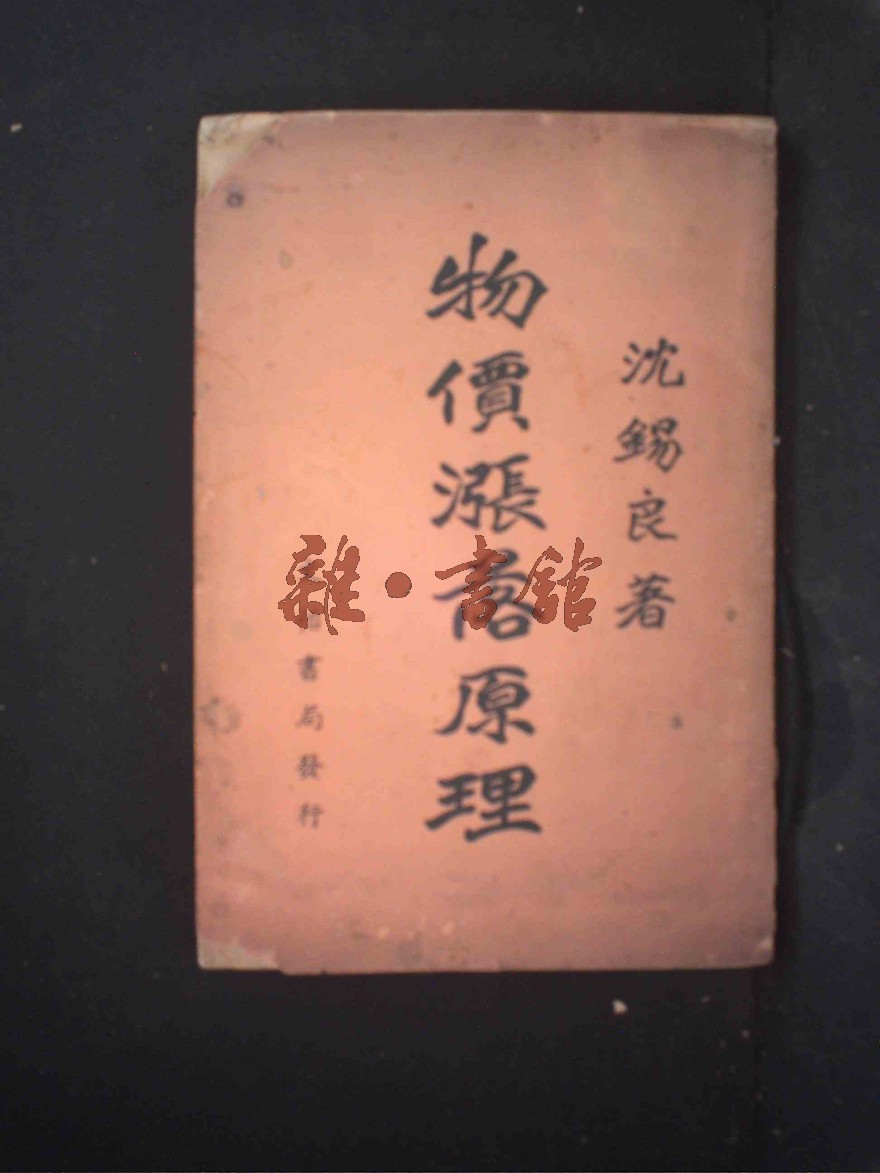 沈錫良著
物價漲落原理
書局發行
雜·書館